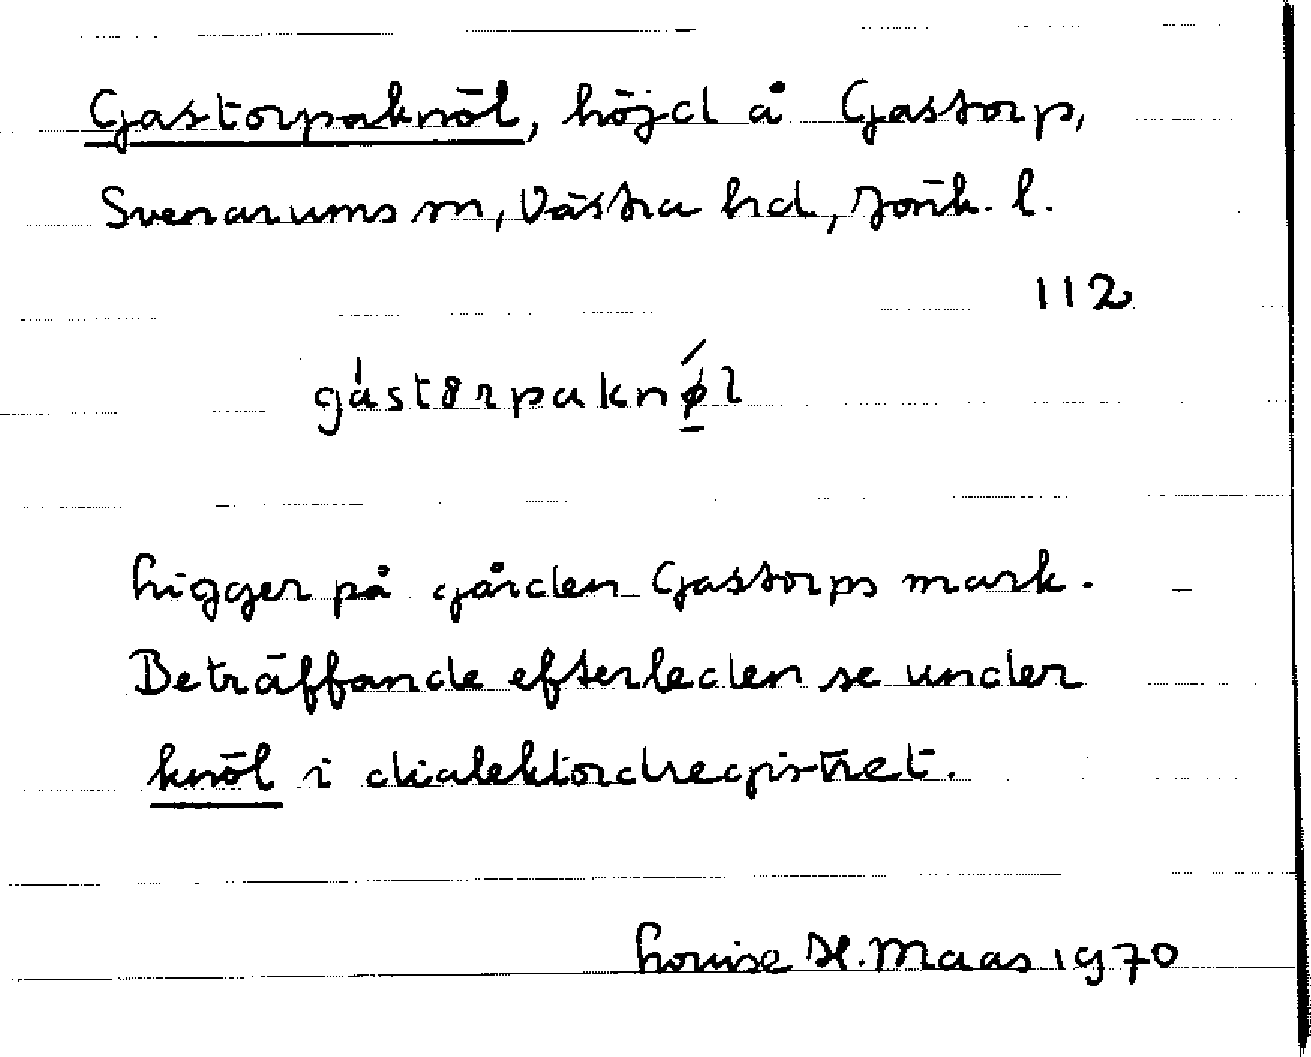 Gastorpaknöl, höjd å Gastorp,
Svenarums sn, Västra hd, Jönk. l.
112
gástơrpaknǿ̱l
Ligger på gården Gastorps mark.
Beträffande efterleden se under
knöl i dialektordregistret.
Louise H. Maas 1970